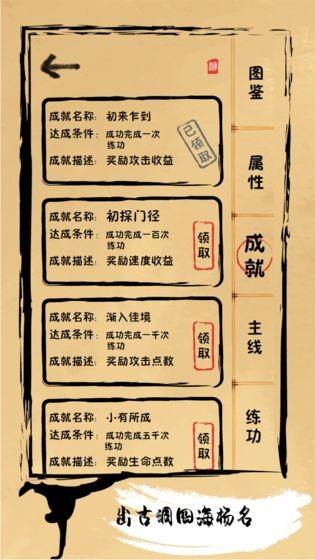 成就名称：初来乍到
达成条件：成功完成一次
练功
成就描述：奖励攻击收益
已领取
成就名称：初探门径
达成条件：成功完成一百次
练功
成就描述：奖励速度收益
领取
成就名称：渐入佳境
达成条件：成功完成一千次
练功
成就描述：奖励攻击点数
领取
成就名称：小有所成
达成条件：成功完成五千次
练功
成就描述：奖励生命点数
领取
图鉴
属性
成就
主线
练功
出古拥四海扬名